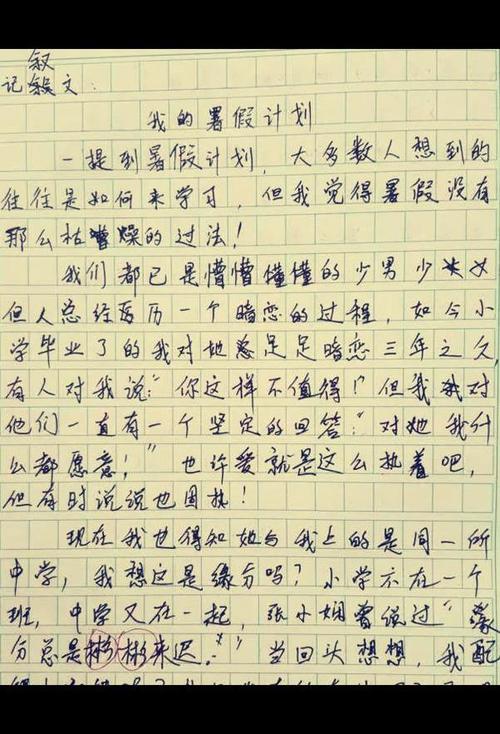 叙
记文:
我的暑假计划
一提到暑假计划,大多数人想到的
往往是如何来学习,但我觉得暑假没有
那么枯燥的过法!
我们都已是懵懵懂懂的少男少女
但人总经历一个暗恋的过程,如今小
学毕业了的我对她总是足足暗恋三年之久,
有人对我说:“你这样不值得!”但我对
他们一直有一个坚定的回答:“对她我什
么都愿意!”也许爱就是这么执着吧,
但有时说说也固执!
现在我也得知她与我上的是同一所
中学,我想这是缘分吗?小学不在一个
班,中学又在一起,张小娴曾说过“缘
分总是彬彬来迟。”当回头想想,我配